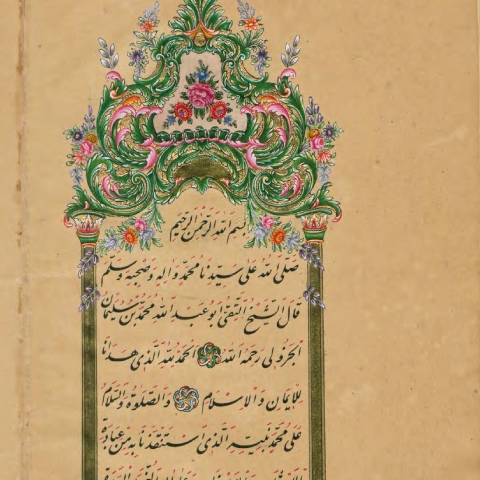 بِسْمِ اللهِ الرَّحْمٰنِ الرَّحِيْمِ
صَلَّى اللهُ عَلَى سَيِّدِنَا مُحَمَّدٍ وَاٰلِهِ وَصَحْبِهِ وَسَلَّمَ
قَالَ الشَّيْخُ التَّقِىُّ اَبُو عَبْدِ اللهِ مُحَمَّدُ بْنُ سُلَيْمَانَ
الجَزُولِى رَحِمَهُ اللهُ اَلْحَمْدُ لِلّٰهِ الَّذِى هَدَانَا
لِلْاِيمَانِ وَالْاِسْلَامِ وَالصَّلٰوةُ وَالسَّلَامُ
عَلَى مُحَمَّدٍ نَبِيِّهِ الَّذِى اسْتَنْقَذَنَا بِهِ مِنْ عِبَادَةِ